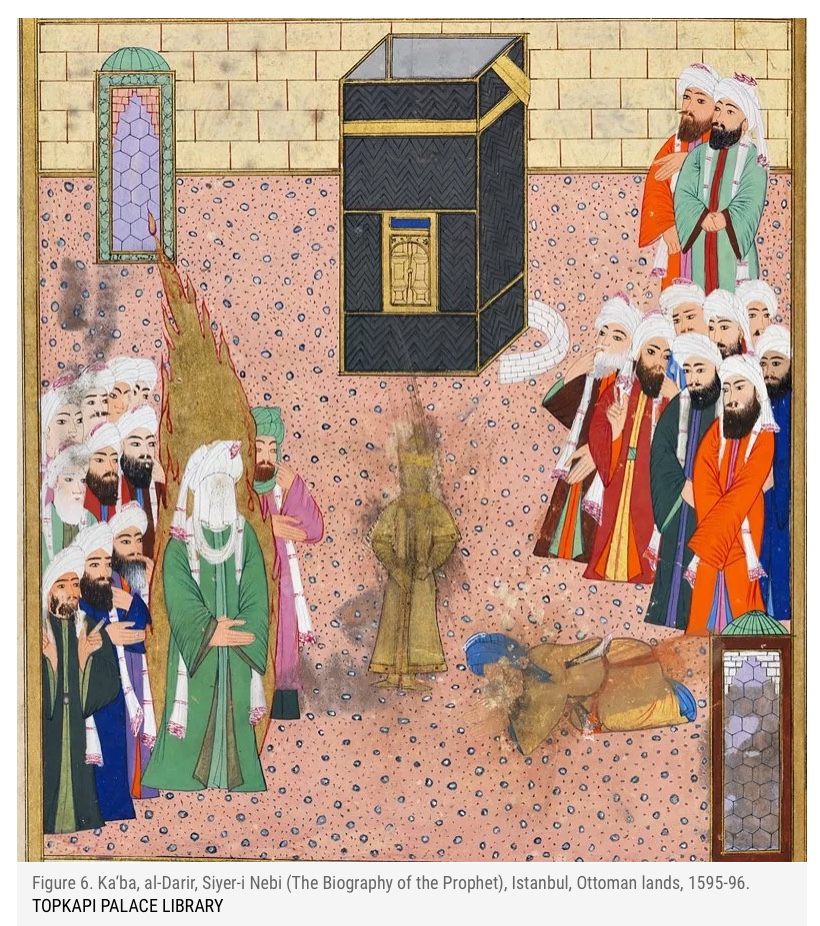 Figure 6. Ka‘ba, al-Darir, Siyer-i Nebi (The Biography of the Prophet), Istanbul, Ottoman lands, 1595-96.
TOPKAPI PALACE LIBRARY